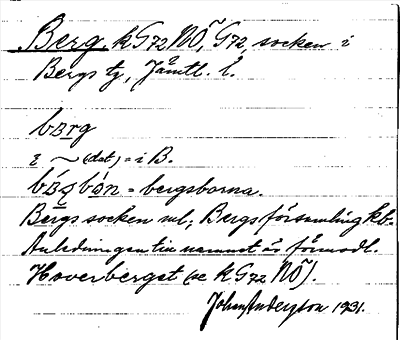 Berg, k G72 NÖ, G72, socken i
Bergs tg, Jämtl. l.
bærg
i ~ (dat) = i B.
= bergsborna.
Bergs socken ml; Bergs församling kb.
Anledningen till namnet är förmodl.
Hoverberget (se k G72 NÖ).
Johan Anderson 1931.